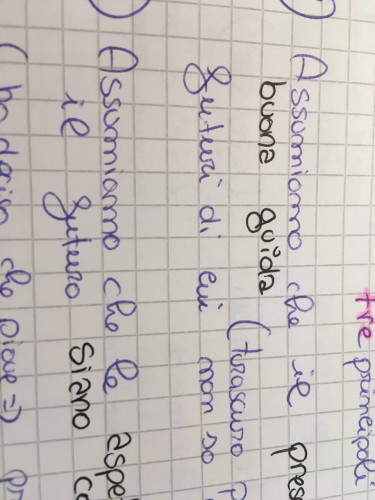 tre principali
) Assumiamo che il pres
buona guida (trascuro
futuri di cui non so
) Assumiamo che le aspe
il futuro siano co
che piove => pr